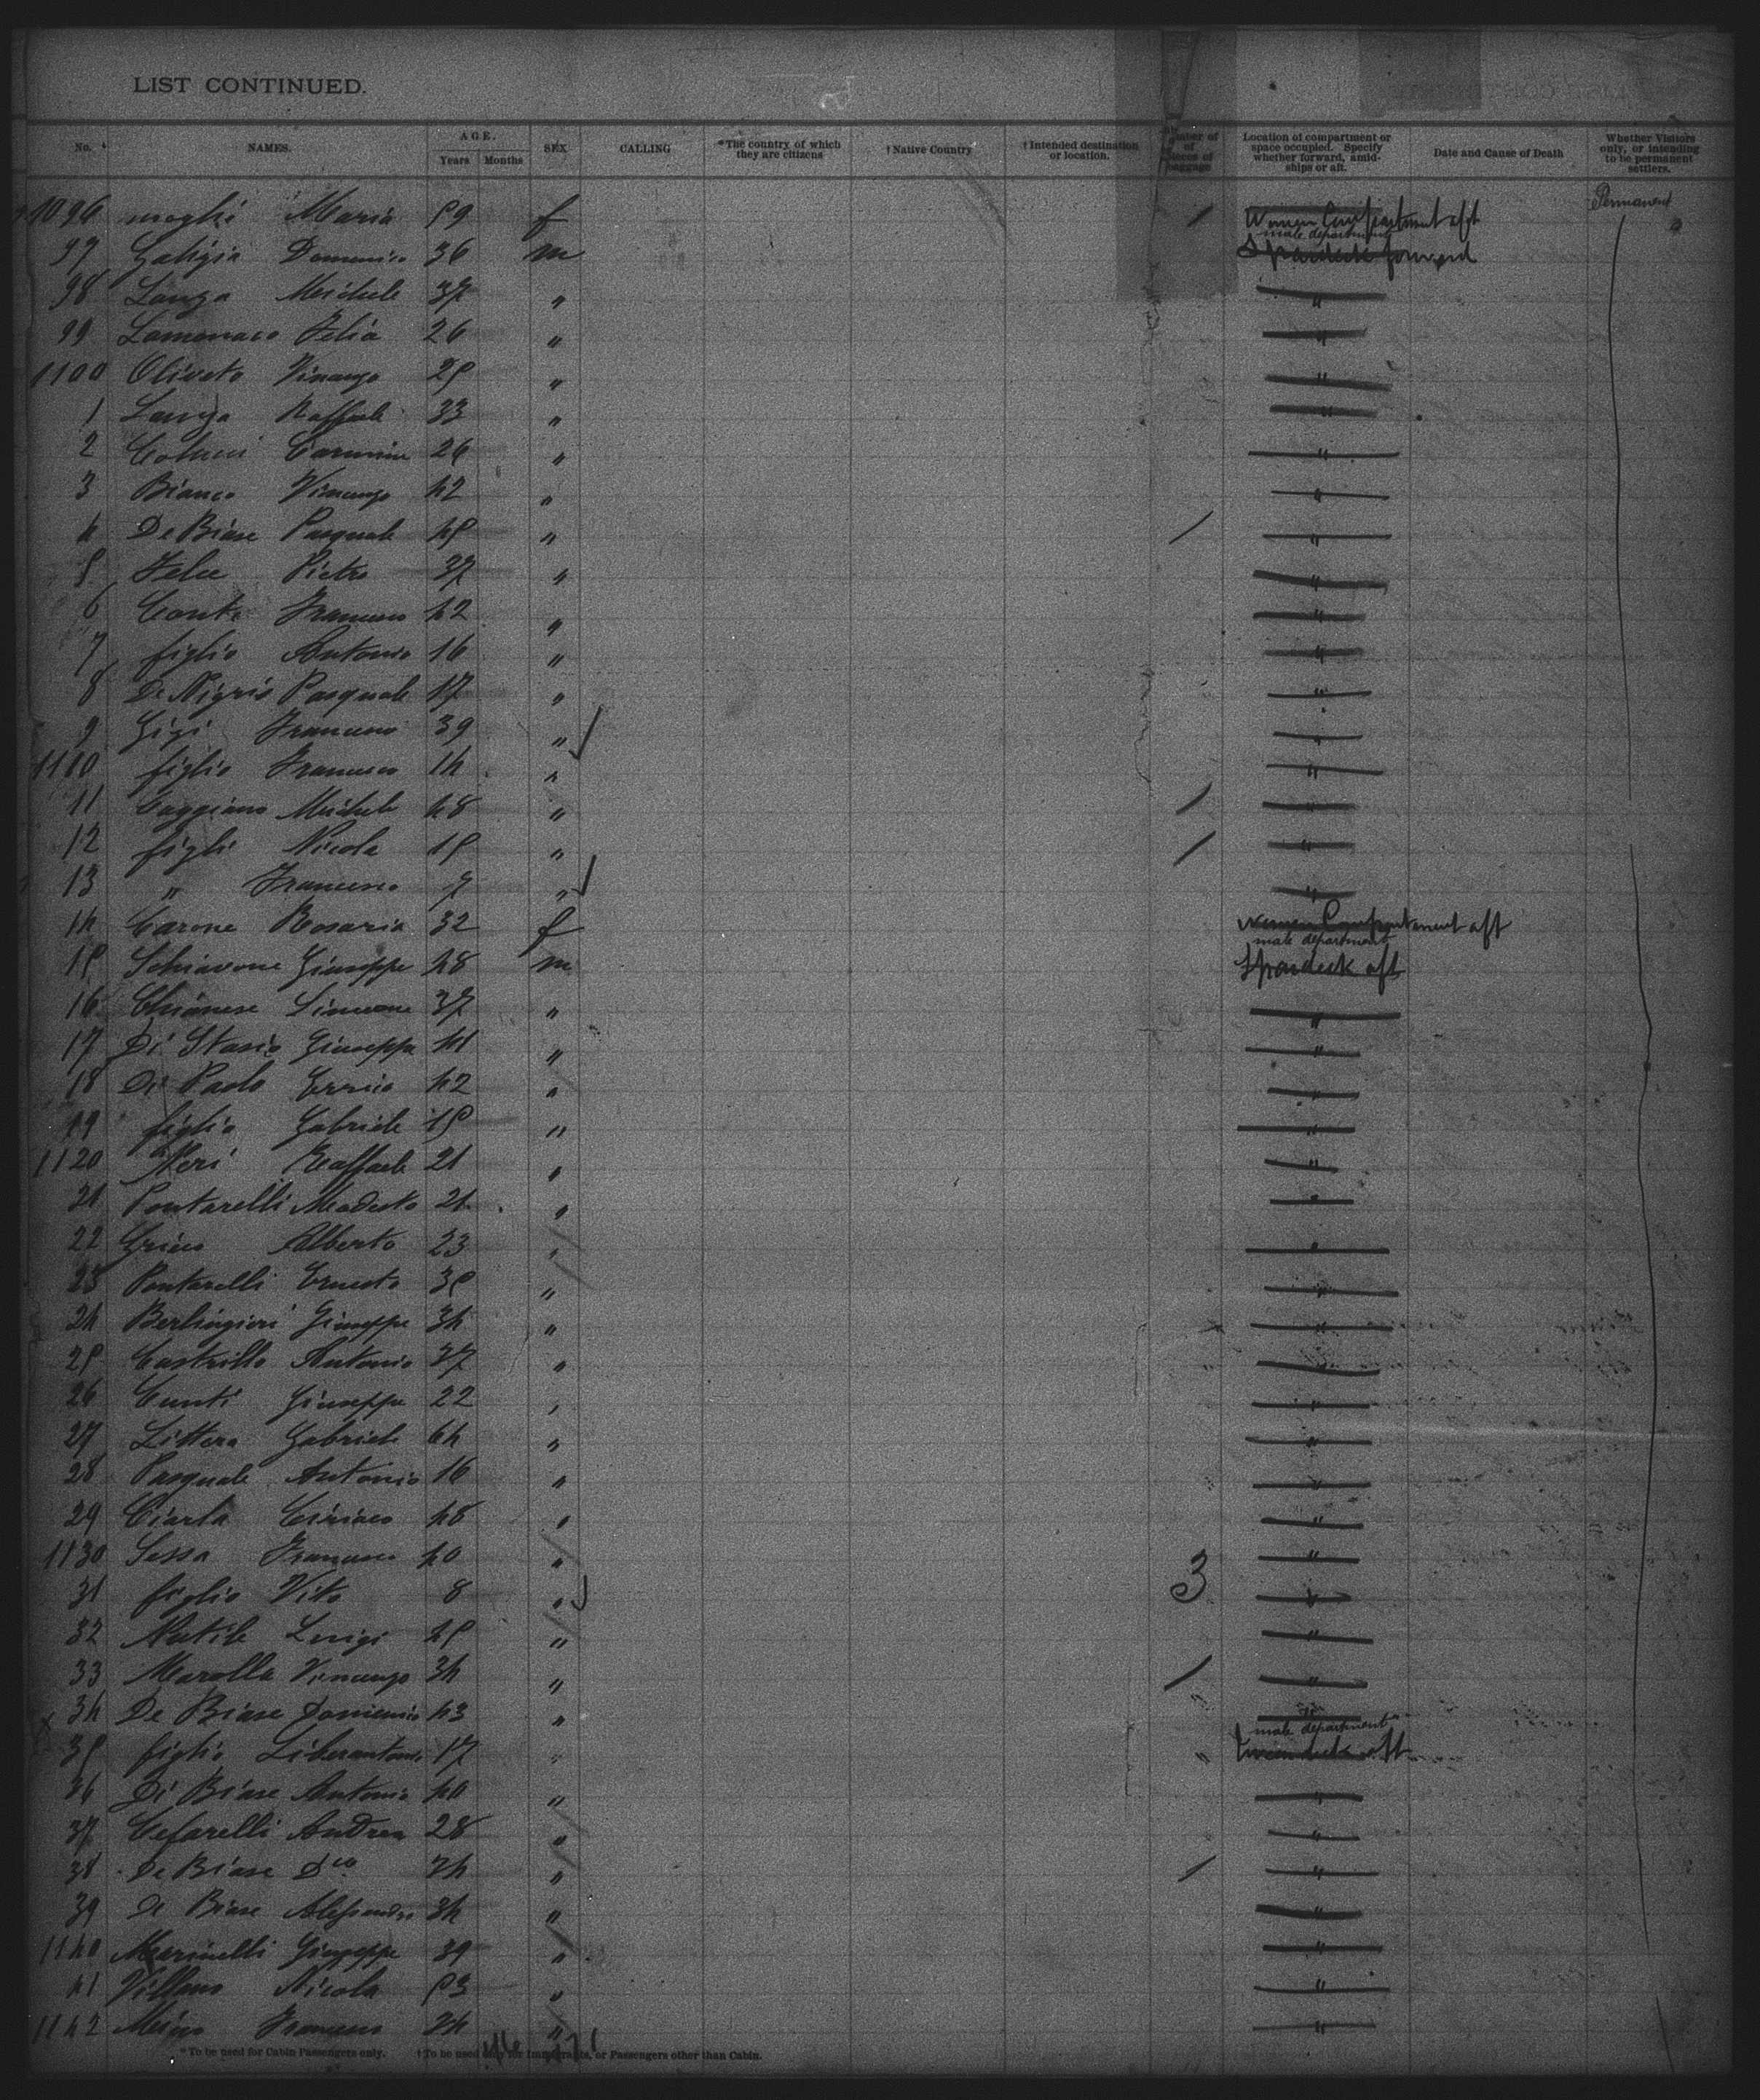 LIST CONTINUED.
No. NAMES. AGE. Years Months SEX CALLING *The country of which they are citizens †Native Country †Intended destination or location. Number of Pieces of Baggage Location of compartment or space occupied. Specify whether forward, amidships or aft. Date and Cause of Death Whether Visitors only, or intending to be permanent settlers.
1096 moglie Maria 59 f / Women Compartment aft Permanent
male department
97 Galizia Domenico 36 m Spardeck forward
98 Langa Michele 37 " "
99 Lamonaco Felia 26 " "
1100 Oliveto Vincenzo 25 " "
1 Langa Raffaele 33 " "
2 Colucci Carmine 26 " "
3 Bianco Vincenzo 42 " "
4 De Biase Pasquale 45 " / "
5 Felice Pietro 37 " "
6 Conte Francesco 42 " "
7 figlio Antonio 16 " "
8 De Nigris Pasquale 17 " "
9 Gigi Francesco 39 " "
1110 figlio Francesco 14 " "
11 Caggiano Michele 48 " / "
12 figli Nicola 15 " / "
13 " Francesco 7 " "
14 Carone Rosaria 32 f women Compartement aft
male department
15 Schiavone Giuseppe 48 m Spardeck aft
16 Chianese Simeone 37 " "
17 Di Stasio Giuseppe 41 " "
18 Di Paolo Errico 42 " "
19 figlio Gabriele 15 " "
1120 Neri Raffaele 21 " "
21 Pontarelli Modesto 21 " "
22 Grieco Alberto 23 " "
23 Pontarelli Ernesto 35 " "
24 Berlingieri Giuseppe 34 " "
25 Castrillo Antonio 37 " "
26 Cunti Giuseppe 22 " "
27 Littera Gabriele 64 " "
28 Pasquale Antonio 16 " "
29 Ciarla Ciriaco 48 " "
1130 Sessa Francesco 40 " "
31 figlio Vito 8 " 3 "
32 Natile Luigi 45 " "
33 Marolla Vincenzo 34 " / "
34 De Biase Domenico 43 " "
male department
35 figlio Liberantonio 17 " " Tweendeck aft
36 Di Biase Antonio 40 " "
37 Cefarelli Andrea 28 " "
38 De Biase Dco 34 " / "
39 De Biase Alessandro 34 " "
1140 Marinelli Giuseppe 39 " "
41 Villano Nicola 53 " "
1142 Francesco 34 " "
*To be used for Cabin Passengers only. †To be used only for Immigrants, or Passengers other than Cabin.